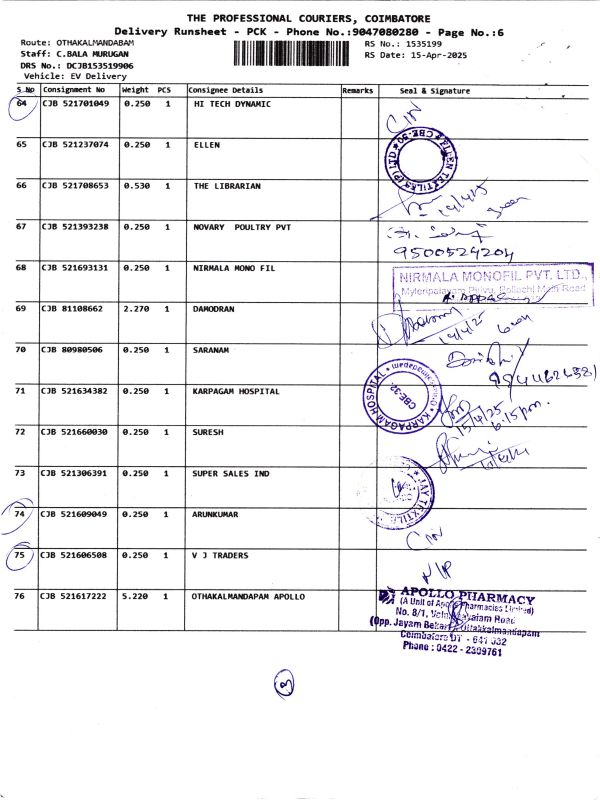 THE PROFESSIONAL COURIERS, COIMBATORE
Delivery Runsheet - PCK - Phone No.:9047080280 - Page No.:6
Route: OTHAKALMANDABAM
RS No.: 1535199
Staff: C.BALA MURUGAN
RS Date: 15-Apr-2025
DRS No.: DCJB153519906
Vehicle: EV Delivery
S No Consignment No Weight PCS Consignee Details Remarks Seal & Signature
64 CJB 521701049 0.250 1 HI TECH DYNAMIC
65 CJB 521237074 0.250 1 ELLEN
ELLEN TEXTILES (P) LTD CBE-50
66 CJB 521708653 0.530 1 THE LIBRARIAN
67 CJB 521393238 0.250 1 NOVARY POULTRY PVT
9500524204
68 CJB 521693131 0.250 1 NIRMALA MONO FIL
NIRMALA MONOFIL PVT. LTD.,
Myleripalayam Pirivu, Pollachi Main Road
69 CJB 81108662 2.270 1 DAMODRAN
70 CJB 80980506 0.250 1 SARANAM
71 CJB 521634382 0.250 1 KARPAGAM HOSPITAL
KARPAGAM HOSPITAL CBE-32
15/4/25
6.15pm.
72 CJB 521660030 0.250 1 SURESH
73 CJB 521306391 0.250 1 SUPER SALES IND
JAY TEXTILE
74 CJB 521609049 0.250 1 ARUNKUMAR
75 CJB 521606508 0.250 1 V J TRADERS
76 CJB 521617222 5.220 1 OTHAKALMANDAPAM APOLLO
APOLLO PHARMACY
(A Unit of Apollo Pharmacies Limited)
No. 8/1, Road
(Opp. Jayam Bekari) Othakkalmandapam
Coimbatore DT - 641 032
Phone : 0422 - 2309761
3